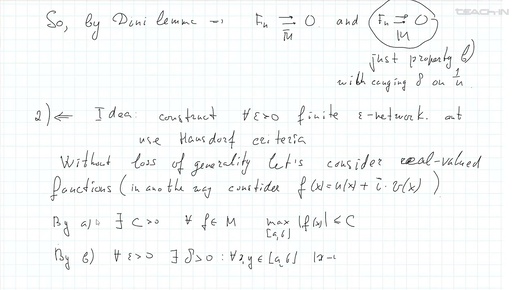 TEACH-IN
So, by Dini lemma → Fn ⇉ 0 and Fn ⇉ 0
M̄ M
just property b)
with changing δ on 1/n.
2) ⇐ Idea: construct ∀ε>0 finite ε-network. and
use Hausdorf criteria
Without loss of generality let's consider real-valued
functions (in another way constider f(x)=u(x)+i·v(x))
By a) ∃ C>0 ∀ f∈M max |f(x)| ≤ C
[a,b]
By b) ∀ ε>0 ∃ δ>0 : ∀x,y ∈ [a,b] |x-